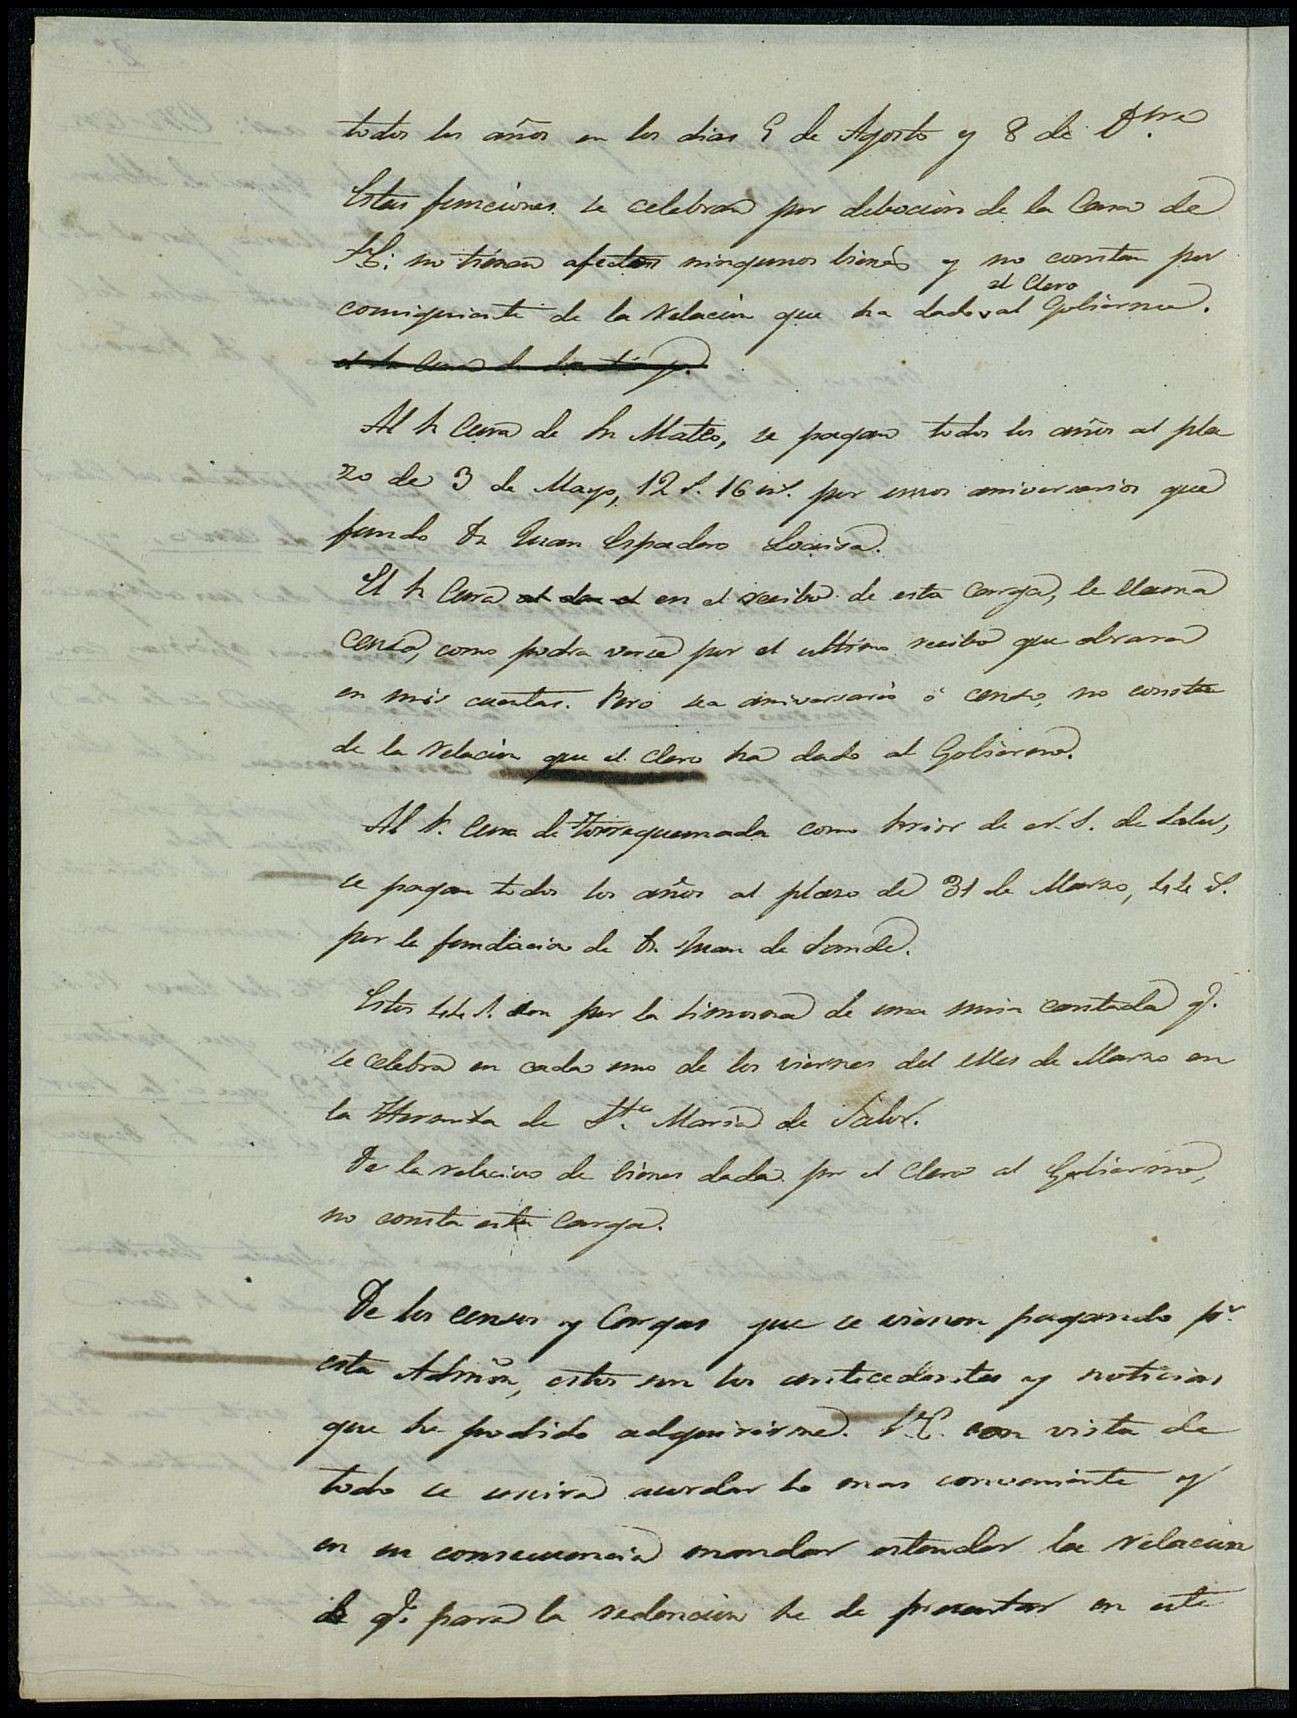 todos los años en los dias 9 de Agosto y 8 de Dbre
Estas funciones se celebran por debocion de la Casa de
V.E.: no tienen afectos ningunos bienes y no constan por
el Clero
consiguiente de la relacion que ha dado al Gobierno.
Al Sr Cura de Sn Mateo, se pagan todos los años al pla
zo de 3 de Mayo, 12 r. 16 ms. por unos aniversarios que
fundo Dn Juan Espadero Loaisa.
El Sr Cura al dar el en el recibo de esta carga, le llama
censo, como podra verse por el ultimo recibo que obrara
en mis cuentas. Pero sea aniversario ó censo, no consta
de la relacion que el Clero ha dado al Gobierno.
Al Sr. Cura de Torrequemada como Prior de N. S. de Salor,
se pagan todos los años al plazo de 31 de Marzo, 44 r.
por la fundacion de Dn Juan de Sande.
Estos 44 r. son por la limosna de una misa cantada q.
se celebra en cada uno de los viernes del Mes de Marzo en
la Hermita de Sta. Maria de Salor.
De la relacion de bienes dada por el Clero al Gobierno,
no consta esta carga.
De los censos y Cargas que se vienen pagando pr.
esta Admon, estos son los antecedentes y noticias
que he podido adquirirme. V.E. con vista de
todo se servira acordar lo mas conveniente y
en su consecuencia mandar estender la relacion
q. para la redencion he de presentar en este